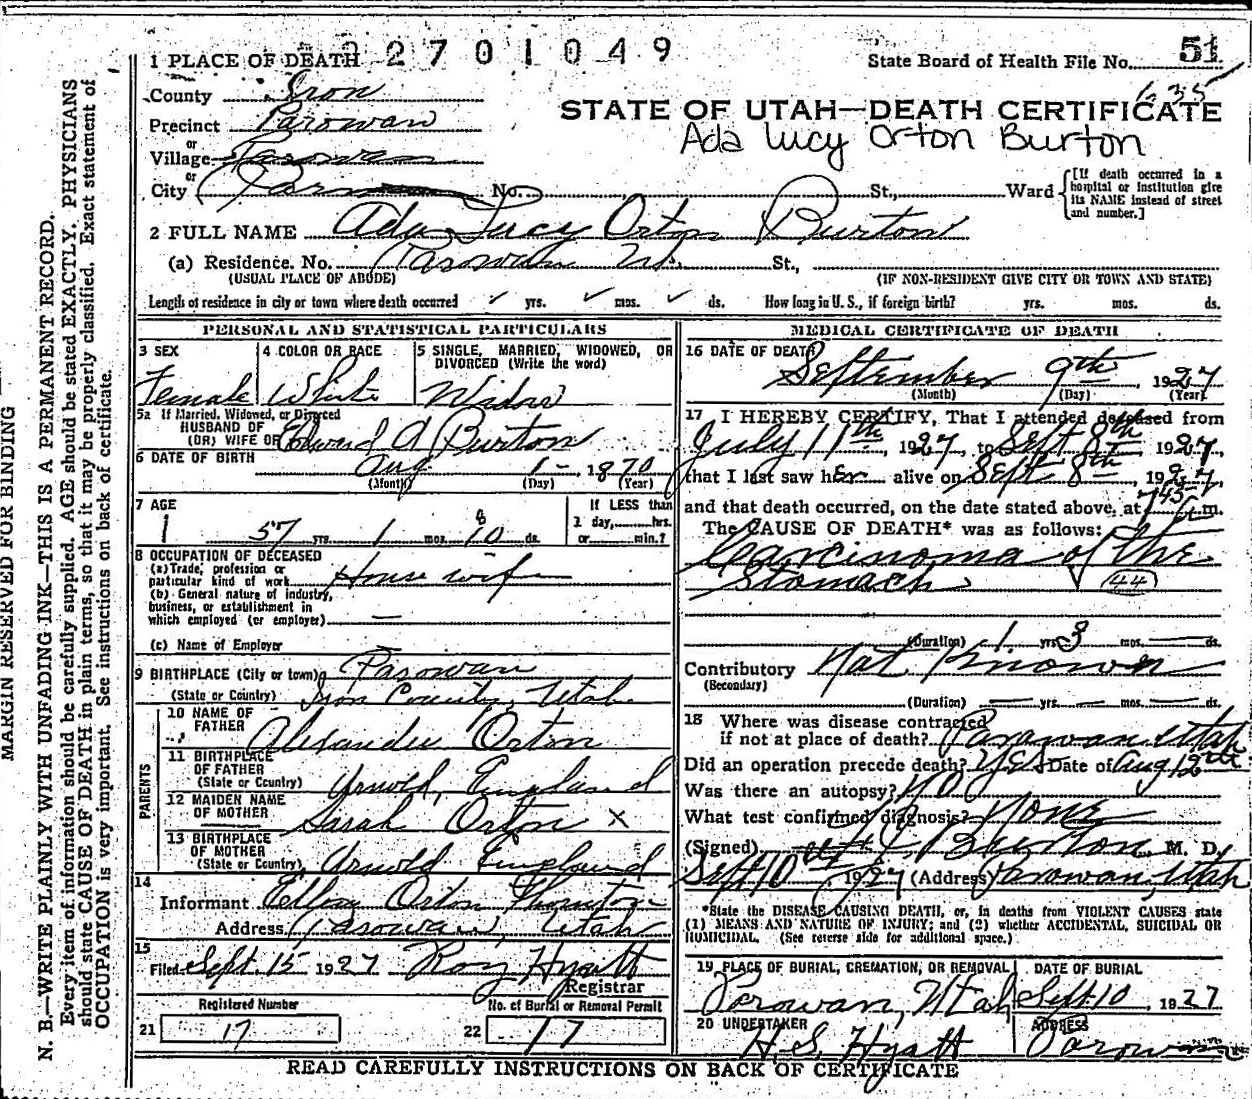 2701049
1 PLACE OF DEATH
State Board of Health File No. 51
635
County Iron
STATE OF UTAH—DEATH CERTIFICATE
Precinct Parowan
Ada Lucy Orton Burton
or
Village Parowan
or
City No. St., Ward
[If death occurred in a hospital or institution give its NAME instead of street and number.]
2 FULL NAME Ada Lucy Orton Burton
(a) Residence. No. Parowan Ut. St.,
(USUAL PLACE OF ABODE) (IF NON-RESIDENT GIVE CITY OR TOWN AND STATE)
Length of residence in city or town where death occurred ✓ yrs. ✓ mos. ✓ ds. How long in U. S., if foreign birth? yrs. mos. ds.
PERSONAL AND STATISTICAL PARTICULARS
3 SEX
Female
4 COLOR OR RACE
White
5 SINGLE, MARRIED, WIDOWED, OR DIVORCED (Write the word)
Widow
5a If Married, Widowed, or Divorced
HUSBAND OF
(OR) WIFE OF Edward A Burton
6 DATE OF BIRTH Aug 1- 1870
(Month) (Day) (Year)
7 AGE
57 yrs. 1 mos. 10 8 ds.
If LESS than
1 day, hrs.
or min.?
8 OCCUPATION OF DECEASED
(a) Trade, profession or
particular kind of work House wife
(b) General nature of industry,
business, or establishment in
which employed (or employer) —
(c) Name of Employer
9 BIRTHPLACE (City or town) Parowan
(State or Country) Iron County, Utah
PARENTS
10 NAME OF
FATHER Alexander Orton
11 BIRTHPLACE
OF FATHER
(State or Country) Arnold, England
12 MAIDEN NAME
OF MOTHER Sarah Orton X
13 BIRTHPLACE
OF MOTHER
(State or Country) Arnold England
14
Informant Ellen Orton Thornton
Address Parowan, Utah
15
Filed Sept. 15 1927 Roy Hyatt
Registrar
Registered Number
21 17
No. of Burial or Removal Permit
22 17
MEDICAL CERTIFICATE OF DEATH
16 DATE OF DEATH
September 9th, 1927
(Month) (Day) (Year)
17 I HEREBY CERTIFY, That I attended deceased from
July 11th, 1927, to Sept 8th 1927
that I last saw her alive on Sept 8th, 1927,
and that death occurred, on the date stated above, at 7 45 m.
The CAUSE OF DEATH* was as follows:
Carcinoma of the
Stomach 44
(Duration) 1 yrs 3 mos. ds.
Contributory Not Known
(Secondary)
(Duration) yrs. mos. ds.
18 Where was disease contracted
if not at place of death? Parawan, Utah
Did an operation precede death? Yes Date of Aug 12th
Was there an autopsy? No
What test confirmed diagnosis? None
(Signed) Burton, M. D.
Sept 10, 1927 (Address) Parowan, Utah
*State the DISEASE CAUSING DEATH, or, in deaths from VIOLENT CAUSES state
(1) MEANS AND NATURE OF INJURY; and (2) whether ACCIDENTAL, SUICIDAL OR
HOMICIDAL. (See reverse side for additional space.)
19 PLACE OF BURIAL, CREMATION, OR REMOVAL
Parowan, Utah
DATE OF BURIAL
Sept 10 1927
20 UNDERTAKER
H. S. Hyatt
ADDRESS
Parowan
READ CAREFULLY INSTRUCTIONS ON BACK OF CERTIFICATE
MARGIN RESERVED FOR BINDING
N. B.—WRITE PLAINLY WITH UNFADING INK—THIS IS A PERMANENT RECORD.
Every item of information should be carefully supplied. AGE should be stated EXACTLY. PHYSICIANS
should state CAUSE OF DEATH in plain terms, so that it may be properly classified. Exact statement of
OCCUPATION is very important. See instructions on back of certificate.